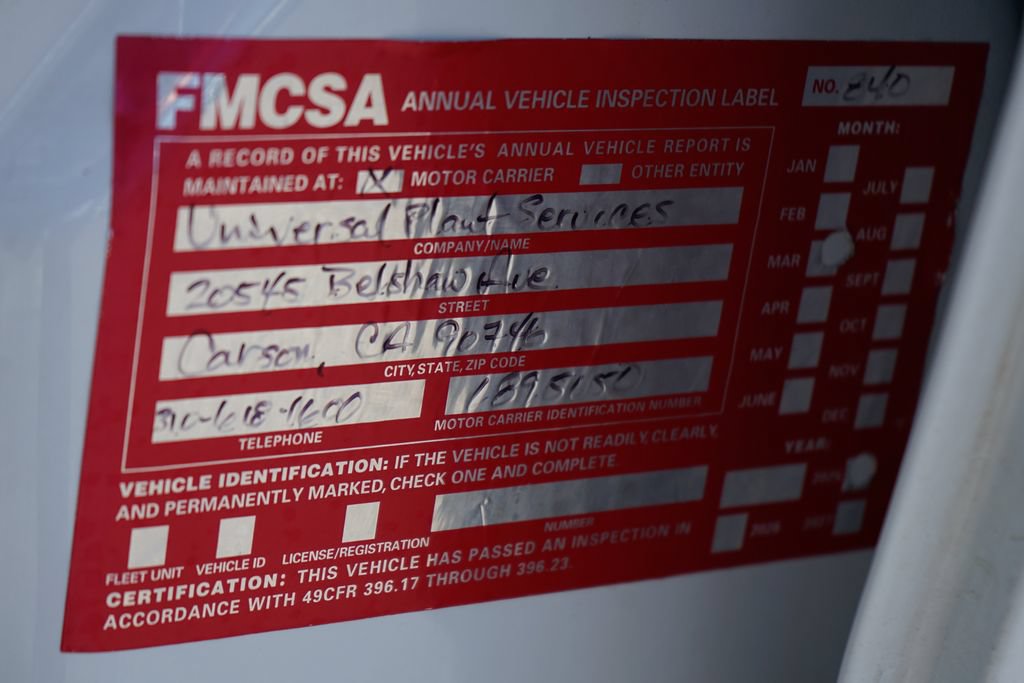 FMCSA ANNUAL VEHICLE INSPECTION LABEL
NO. 840
A RECORD OF THIS VEHICLE'S ANNUAL VEHICLE REPORT IS
MAINTAINED AT: X MOTOR CARRIER OTHER ENTITY
Universal Plant Services
COMPANY/NAME
20545 Belshaw Ave.
STREET
Carson, CA 90746
CITY, STATE, ZIP CODE
310-618-1600 1895150
TELEPHONE MOTOR CARRIER IDENTIFICATION NUMBER
VEHICLE IDENTIFICATION: IF THE VEHICLE IS NOT READILY, CLEARLY,
AND PERMANENTLY MARKED, CHECK ONE AND COMPLETE.
NUMBER
FLEET UNIT VEHICLE ID LICENSE/REGISTRATION
CERTIFICATION: THIS VEHICLE HAS PASSED AN INSPECTION IN
ACCORDANCE WITH 49CFR 396.17 THROUGH 396.23.
MONTH:
JAN JULY
FEB AUG
MAR SEPT
APR OCT
MAY NOV
JUNE DEC
YEAR:
2026